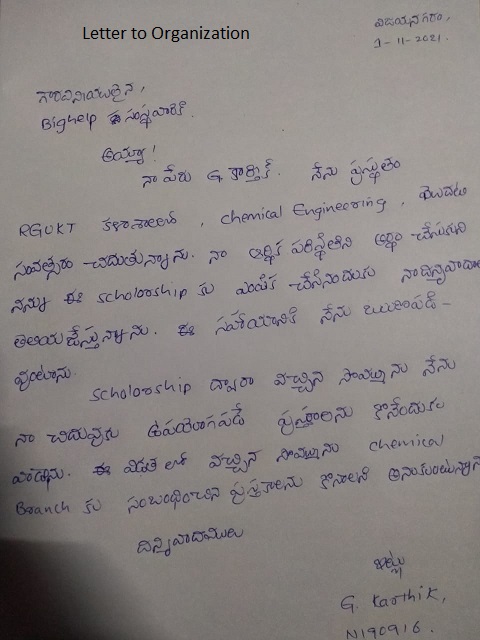 Letter to Organization
విజయనగరం,
1-11-2021.
గౌరవనీయులైన,
Bighelp సంస్థవారికి.
అయ్యా!
నా పేరు G కార్తిక్. నేను ప్రస్తుతం
RGUKT కళాశాలలో, chemical Engineering, మొదటి
సంవత్సరం చదుతున్నాను. నా ఆర్థిక పరిస్థితిని అర్థం చేసుకుని
నన్ను ఈ scholorship కు ఎంపిక చేసినందుకు నా ధన్యవాదాలు
తెలియజేస్తున్నాను. ఈ సహాయానికి నేను ఋణపడి-
వుంటాను.
scholorship ద్వారా వచ్చిన సొమ్మును నేను
నా చదువుకు ఉపయోగపడే పుస్తకాలను కొనేందుకు
వాడాను. ఈ విడత లో వచ్చిన సొమ్మును chemical
Branch కు సంబంధించిన పుస్తకాలను కొనాలని అనుకుంటున్నాను
ధన్యవాదములు
ఇట్లు
G. Karthik,
N190916.